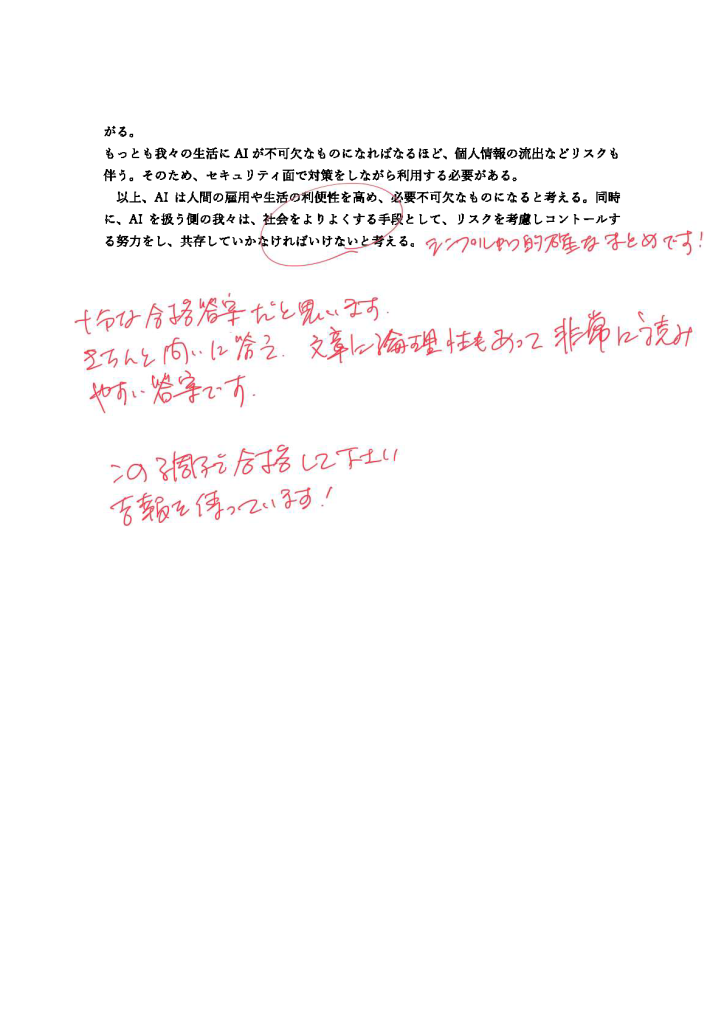 がる。
もっとも我々の生活に AI が不可欠なものになればなるほど、個人情報の流出などリスクも
伴う。そのため、セキュリティ面で対策をしながら利用する必要がある。
以上、AI は人間の雇用や生活の利便性を高め、必要不可欠なものになると考える。同時
に、AI を扱う側の我々は、社会をよりよくする手段として、リスクを考慮しコントロールす
る努力をし、共存していかなければいけないと考える。
シンプルかつ的確なまとめです！
十分な合格答案だと思います.
きちんと問いに答え. 文章に論理性もあって非常に読み
やすい答案です.
この調子で合格して下さい
吉報を待っています！